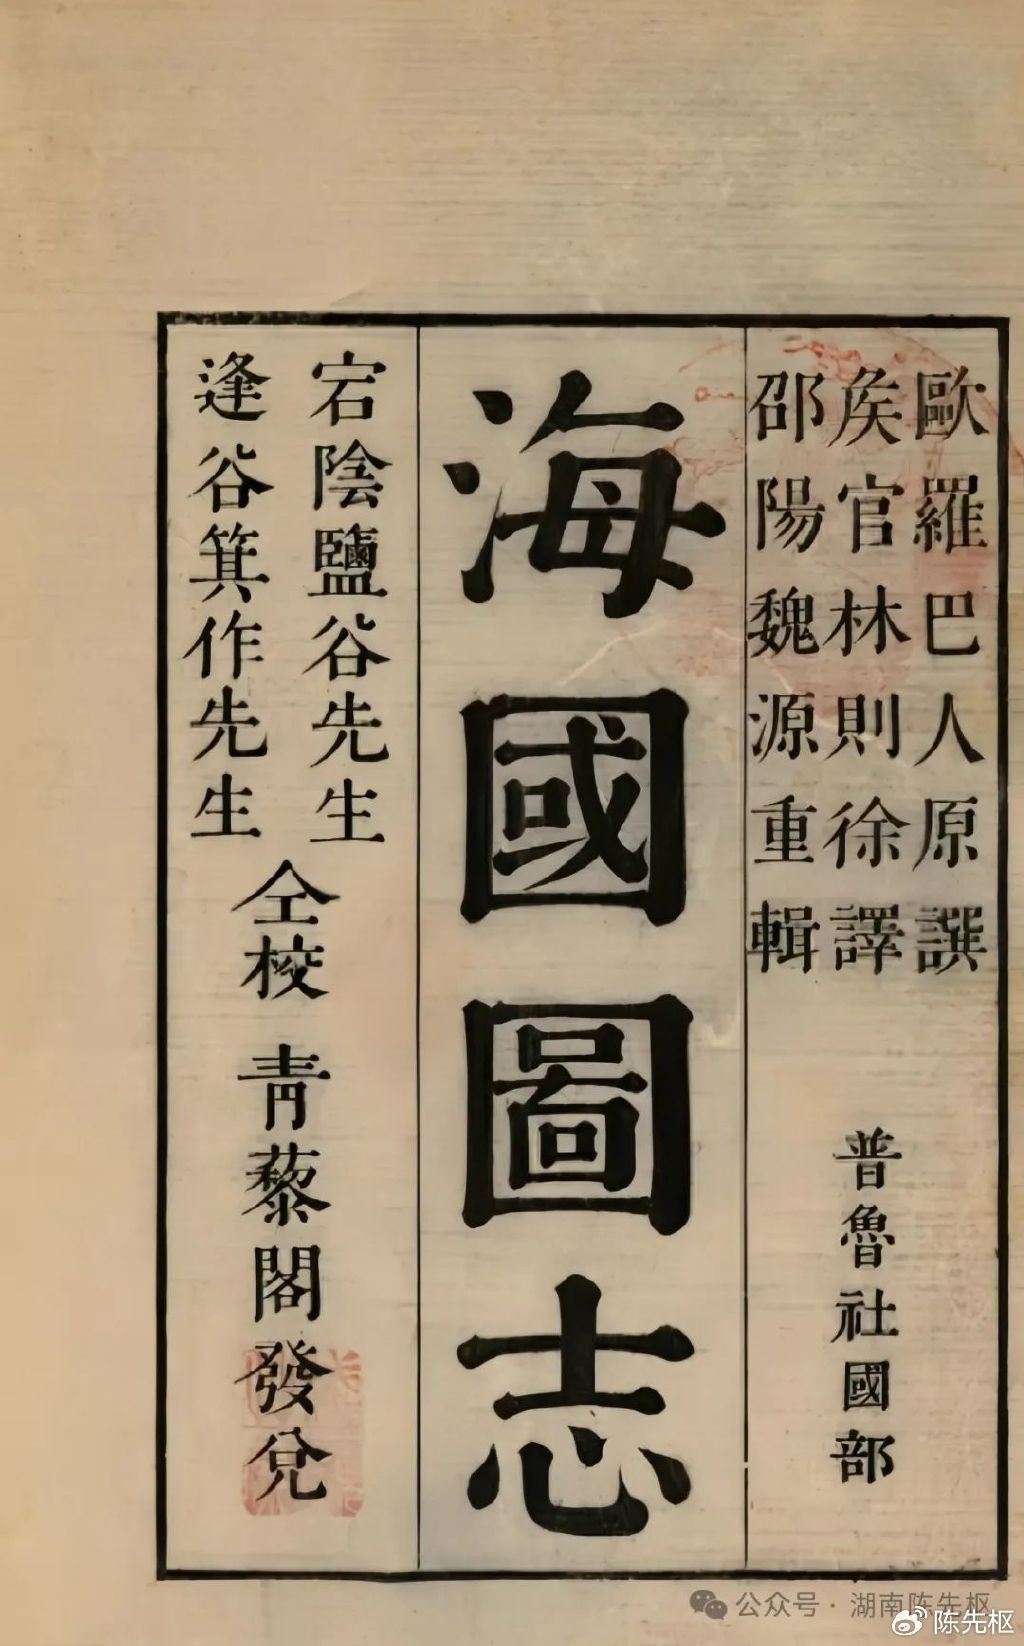 歐羅巴人原譔
矦官林則徐譯
邵陽魏源重輯
普魯社國部
海國圖志
宕陰鹽谷先生
逢谷箕作先生
仝校
青藜閣發兌
公众号·湖南陈先枢
陈先枢